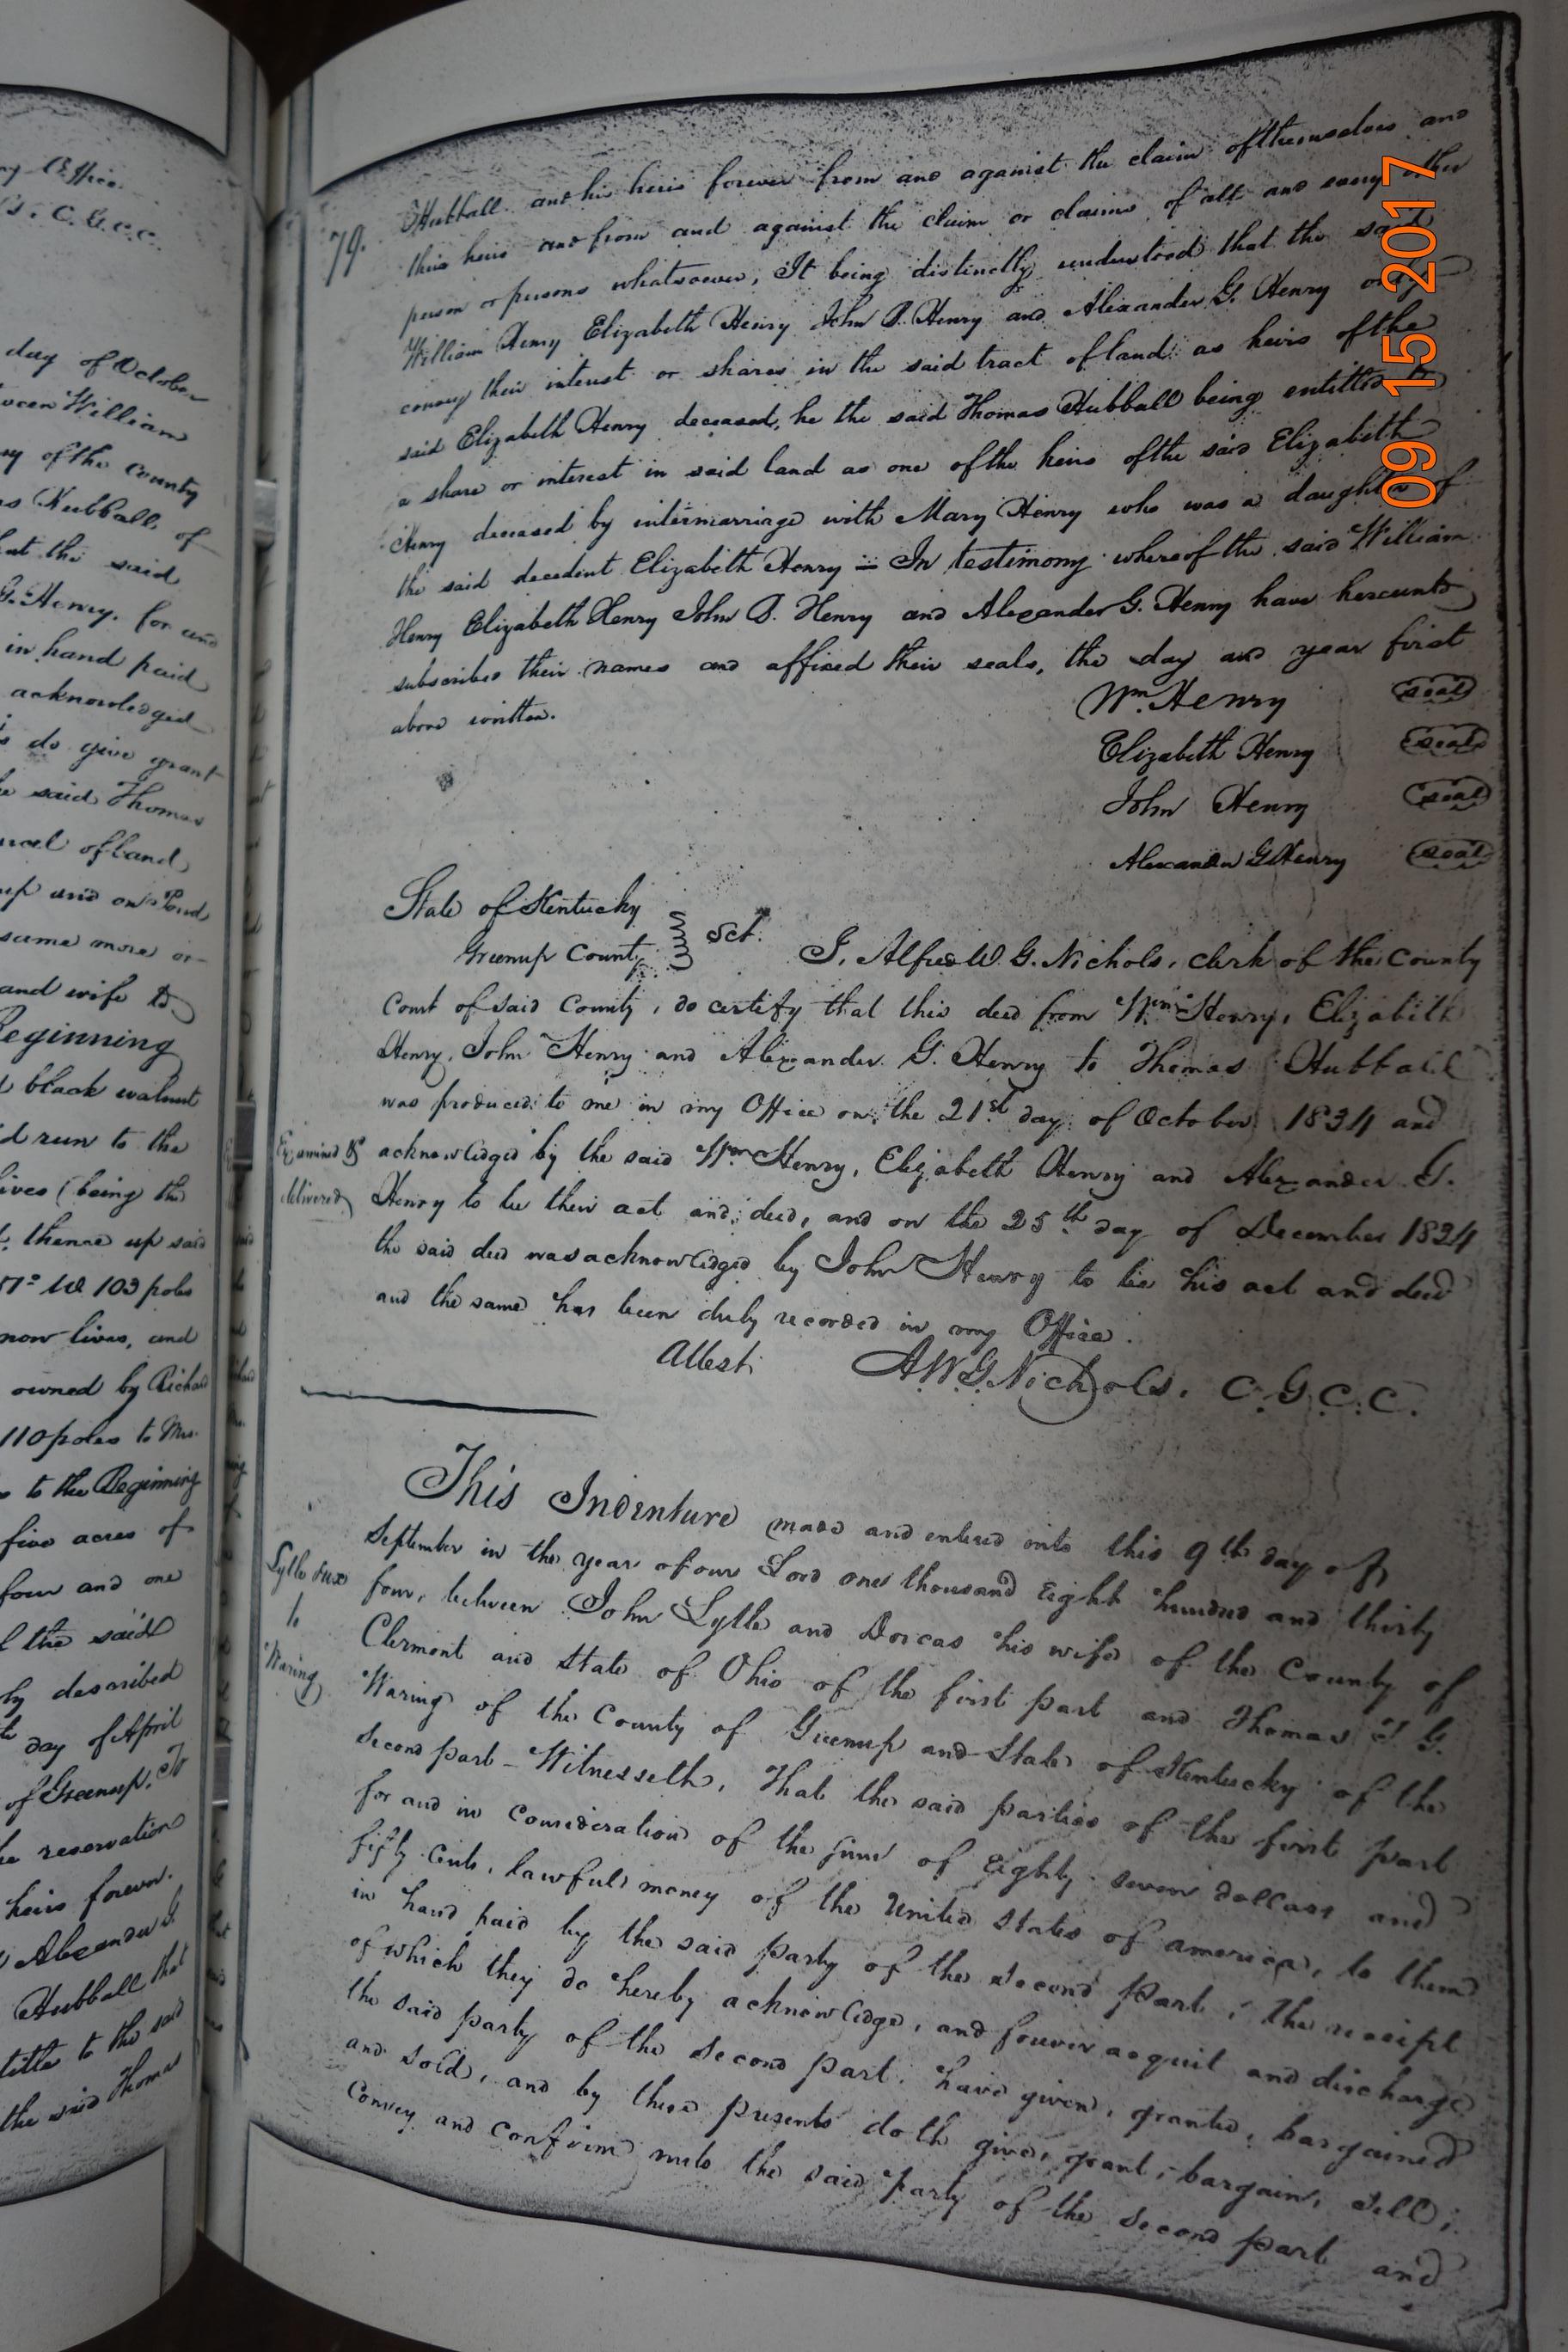 ny Office.
s. C.G.C.C.
day of October
ween William
ny of the county
s Hubball of
hat the said
G. Henry, for and
in hand paid
acknowledged
s do give grant
e said Thomas
arcel of land
up and on
same more or
and wife to
Beginning
black walnut
d run to the
lives (being the
thence up said
7° W 103 poles
now lives, and
owned by Richard
110 poles to Mrs.
s to the Beginning
five acres of
four and one
l the said
ly described
day of April
of Greenup. To
he reservation
heirs forever.
Alexander G.
Hubball that
title to the said
the said Thomas
79.
Hubball and his heirs forever from and against the claim of themselves and
their heirs and from and against the claim or claims of all and every other
person or persons whatsoever, It being distinctly understood that the said
William Henry Elizabeth Henry John B. Henry and Alexander G. Henry only
convey their interest or shares in the said tract of land as heirs of the
said Elizabeth Henry deceased, he the said Thomas Hubball being entitled to
a share or interest in said land as one of the heirs of the said Elizabeth
Henry deceased by intermarriage with Mary Henry who was a daughter of
the said decedent Elizabeth Henry = In testimony whereof the said William
Henry Elizabeth Henry John B. Henry and Alexander G. Henry have hereunto
subscribed their names and affixed their seals, the day and year first
above written.
Wm. Henry seal
Elizabeth Henry seal
John Henry seal
Alexander G Henry seal
State of Kentucky
Greenup County Sct.
I, Alfred W. G. Nichols, clerk of the County
Court of said County, do certify that this deed from Wm. Henry, Elizabeth
Henry, John Henry and Alexander G. Henry to Thomas Hubball
was produced to me in my Office on the 21st day of October 1834 and
Examined &
delivered
acknowledged by the said Wm Henry, Elizabeth Henry and Alexander G.
Henry to be their act and deed, and on the 25th day of December 1834
the said deed was acknowledged by John Henry to be his act and deed
and the same has been duly recorded in my Office.
Attest. A.W.G. Nichols. C.G.C.C.
This Indenture made and entered into this 9th day of
September in the year of our Lord one thousand Eight hundred and thirty
Lytle & ux
to
Waring
four, between John Lytle and Dorcas his wife of the County of
Clermont and State of Ohio of the first part and Thomas T G.
Waring of the County of Greenup and State of Kentucky of the
second part - Witnesseth, That the said parties of the first part
for and in consideration of the sum of Eighty seven dollars and
fifty cents, lawful money of the United States of america, to them
in hand paid by the said party of the second part, the receipt
of which they do hereby acknowledge, and forever acquit and discharge
the said party of the second part, have given, granted, bargained
and sold, and by these presents doth give, grant, bargain, sell,
convey and confirm unto the said party of the second part and
09 15 2017